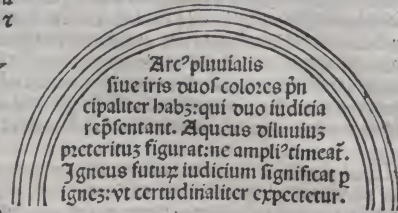 Arcꝰ pluuialis
siue iris duos colores p̄n
cipaliter habꝫ: qui duo iudicia
rep̄sentant. Aqueus diluuiuꝫ
preterituꝫ figurat: ne ampliꝰ timeat᷑.
Igneus futuꝝ iudicium significat ꝑ
igneꝫ: vt certudinaliter expectetur.